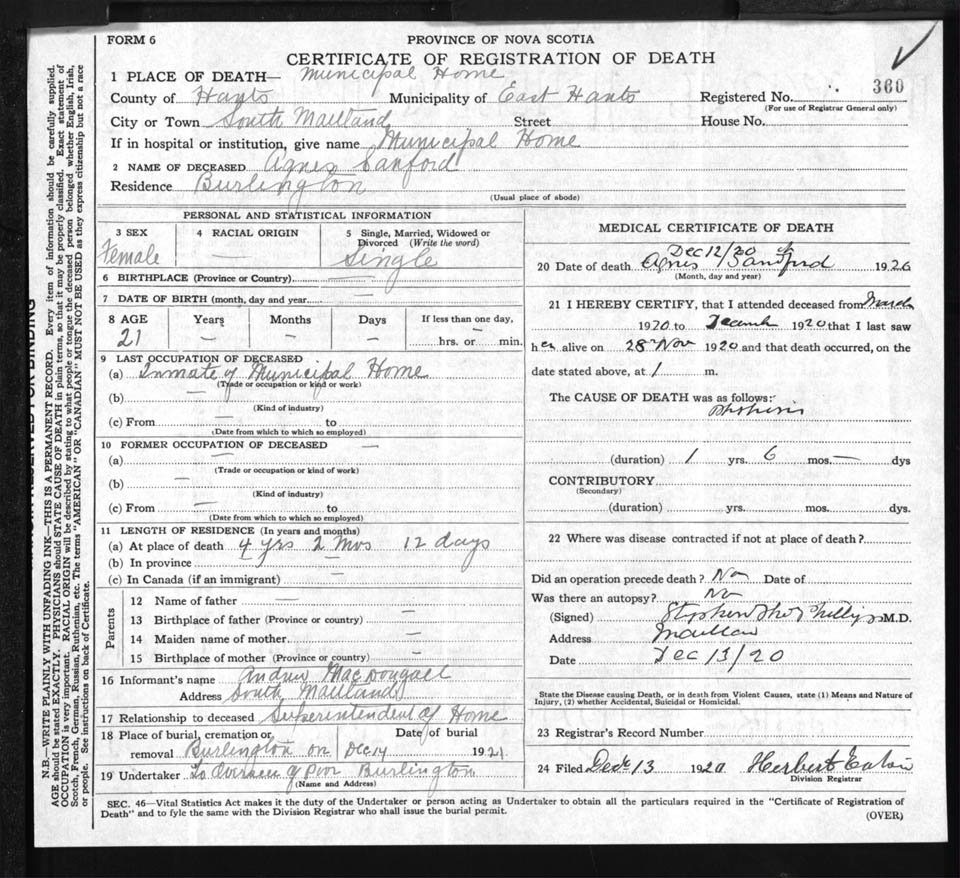 FORM 6
PROVINCE OF NOVA SCOTIA
CERTIFICATE OF REGISTRATION OF DEATH
1 PLACE OF DEATH— Municipal Home
360
County of Hants Municipality of East Hants Registered No.
(For use of Registrar General only)
City or Town South Maitland Street House No.
If in hospital or institution, give name Municipal Home
2 NAME OF DECEASED Agnes Sanford
Residence Burlington
(Usual place of abode)
PERSONAL AND STATISTICAL INFORMATION
3 SEX 4 RACIAL ORIGIN 5 Single, Married, Widowed or
Divorced (Write the word)
Female — Single
6 BIRTHPLACE (Province or Country) —
7 DATE OF BIRTH (month, day and year —
8 AGE Years Months Days If less than one day,
21 — — — —
hrs. or min.
9 LAST OCCUPATION OF DECEASED
(a) Inmate of Municipal Home
(Trade or occupation or kind or work)
(b) —
(Kind of industry)
(c) From — to
(Date from which to which so employed)
10 FORMER OCCUPATION OF DECEASED —
(a) —
(Trade or occupation or kind of work)
(b) —
(Kind of industry)
(c) From — to
(Date from which to which so employed)
11 LENGTH OF RESIDENCE (In years and months)
(a) At place of death 4 yrs 2 Mos 12 days
(b) In province — —
(c) In Canada (if an immigrant) —
Parents
12 Name of father —
13 Birthplace of father (Province or country) —
14 Maiden name of mother —
15 Birthplace of mother (Province or country) —
16 Informant's name Andrew MacDougall
Address South Maitland
17 Relationship to deceased Superintendent of Home
18 Place of burial, cremation or Date of burial
removal Burlington on Dec 14 1921
19 Undertaker To Overseer of Poor Burlington
(Name and Address)
MEDICAL CERTIFICATE OF DEATH
Dec 12/20
20 Date of death Agnes Sandford 1926
(Month, day and year)
21 I HEREBY CERTIFY, that I attended deceased from March
1920 to December 1920 that I last saw
her alive on 28th Nov 1920 and that death occurred, on the
date stated above, at 1 m.
The CAUSE OF DEATH was as follows:
Phthisis
(duration) 1 yrs. 6 mos. — dys
CONTRIBUTORY
(Secondary)
(duration) yrs. mos. dys.
22 Where was disease contracted if not at place of death?
Did an operation precede death? No Date of
Was there an autopsy? No
(Signed) Stephen Phillips M.D.
Address Maitland
Date Dec 13/20
State the Disease causing Death, or in death from Violent Causes, state (1) Means and Nature of
Injury, (2) whether Accidental, Suicidal or Homicidal.
23 Registrar's Record Number
24 Filed Dec 13 1920 Herbert Eaton
Division Registrar
SEC. 46—Vital Statistics Act makes it the duty of the Undertaker or person acting as Undertaker to obtain all the particulars required in the "Certificate of Registration of
Death" and to fyle the same with the Division Registrar who shall issue the burial permit.
(OVER)
RESERVED FOR BINDING
N.B.—WRITE PLAINLY WITH UNFADING INK—THIS IS A PERMANENT RECORD. Every item of information should be carefully supplied.
AGE should be stated EXACTLY. PHYSICIANS should STATE CAUSE OF DEATH in plain terms, so that it may be properly classified. Exact statement of
OCCUPATION is very important. RACIAL ORIGIN will be described by stating to what people or tongue the deceased person belonged whether English, Irish,
Scotch, French, German, Russian, Ruthenian, etc. The terms "AMERICAN" OR "CANADIAN" MUST NOT BE USED as they express citizenship but not a race
or people. See instructions on back of Certificate.